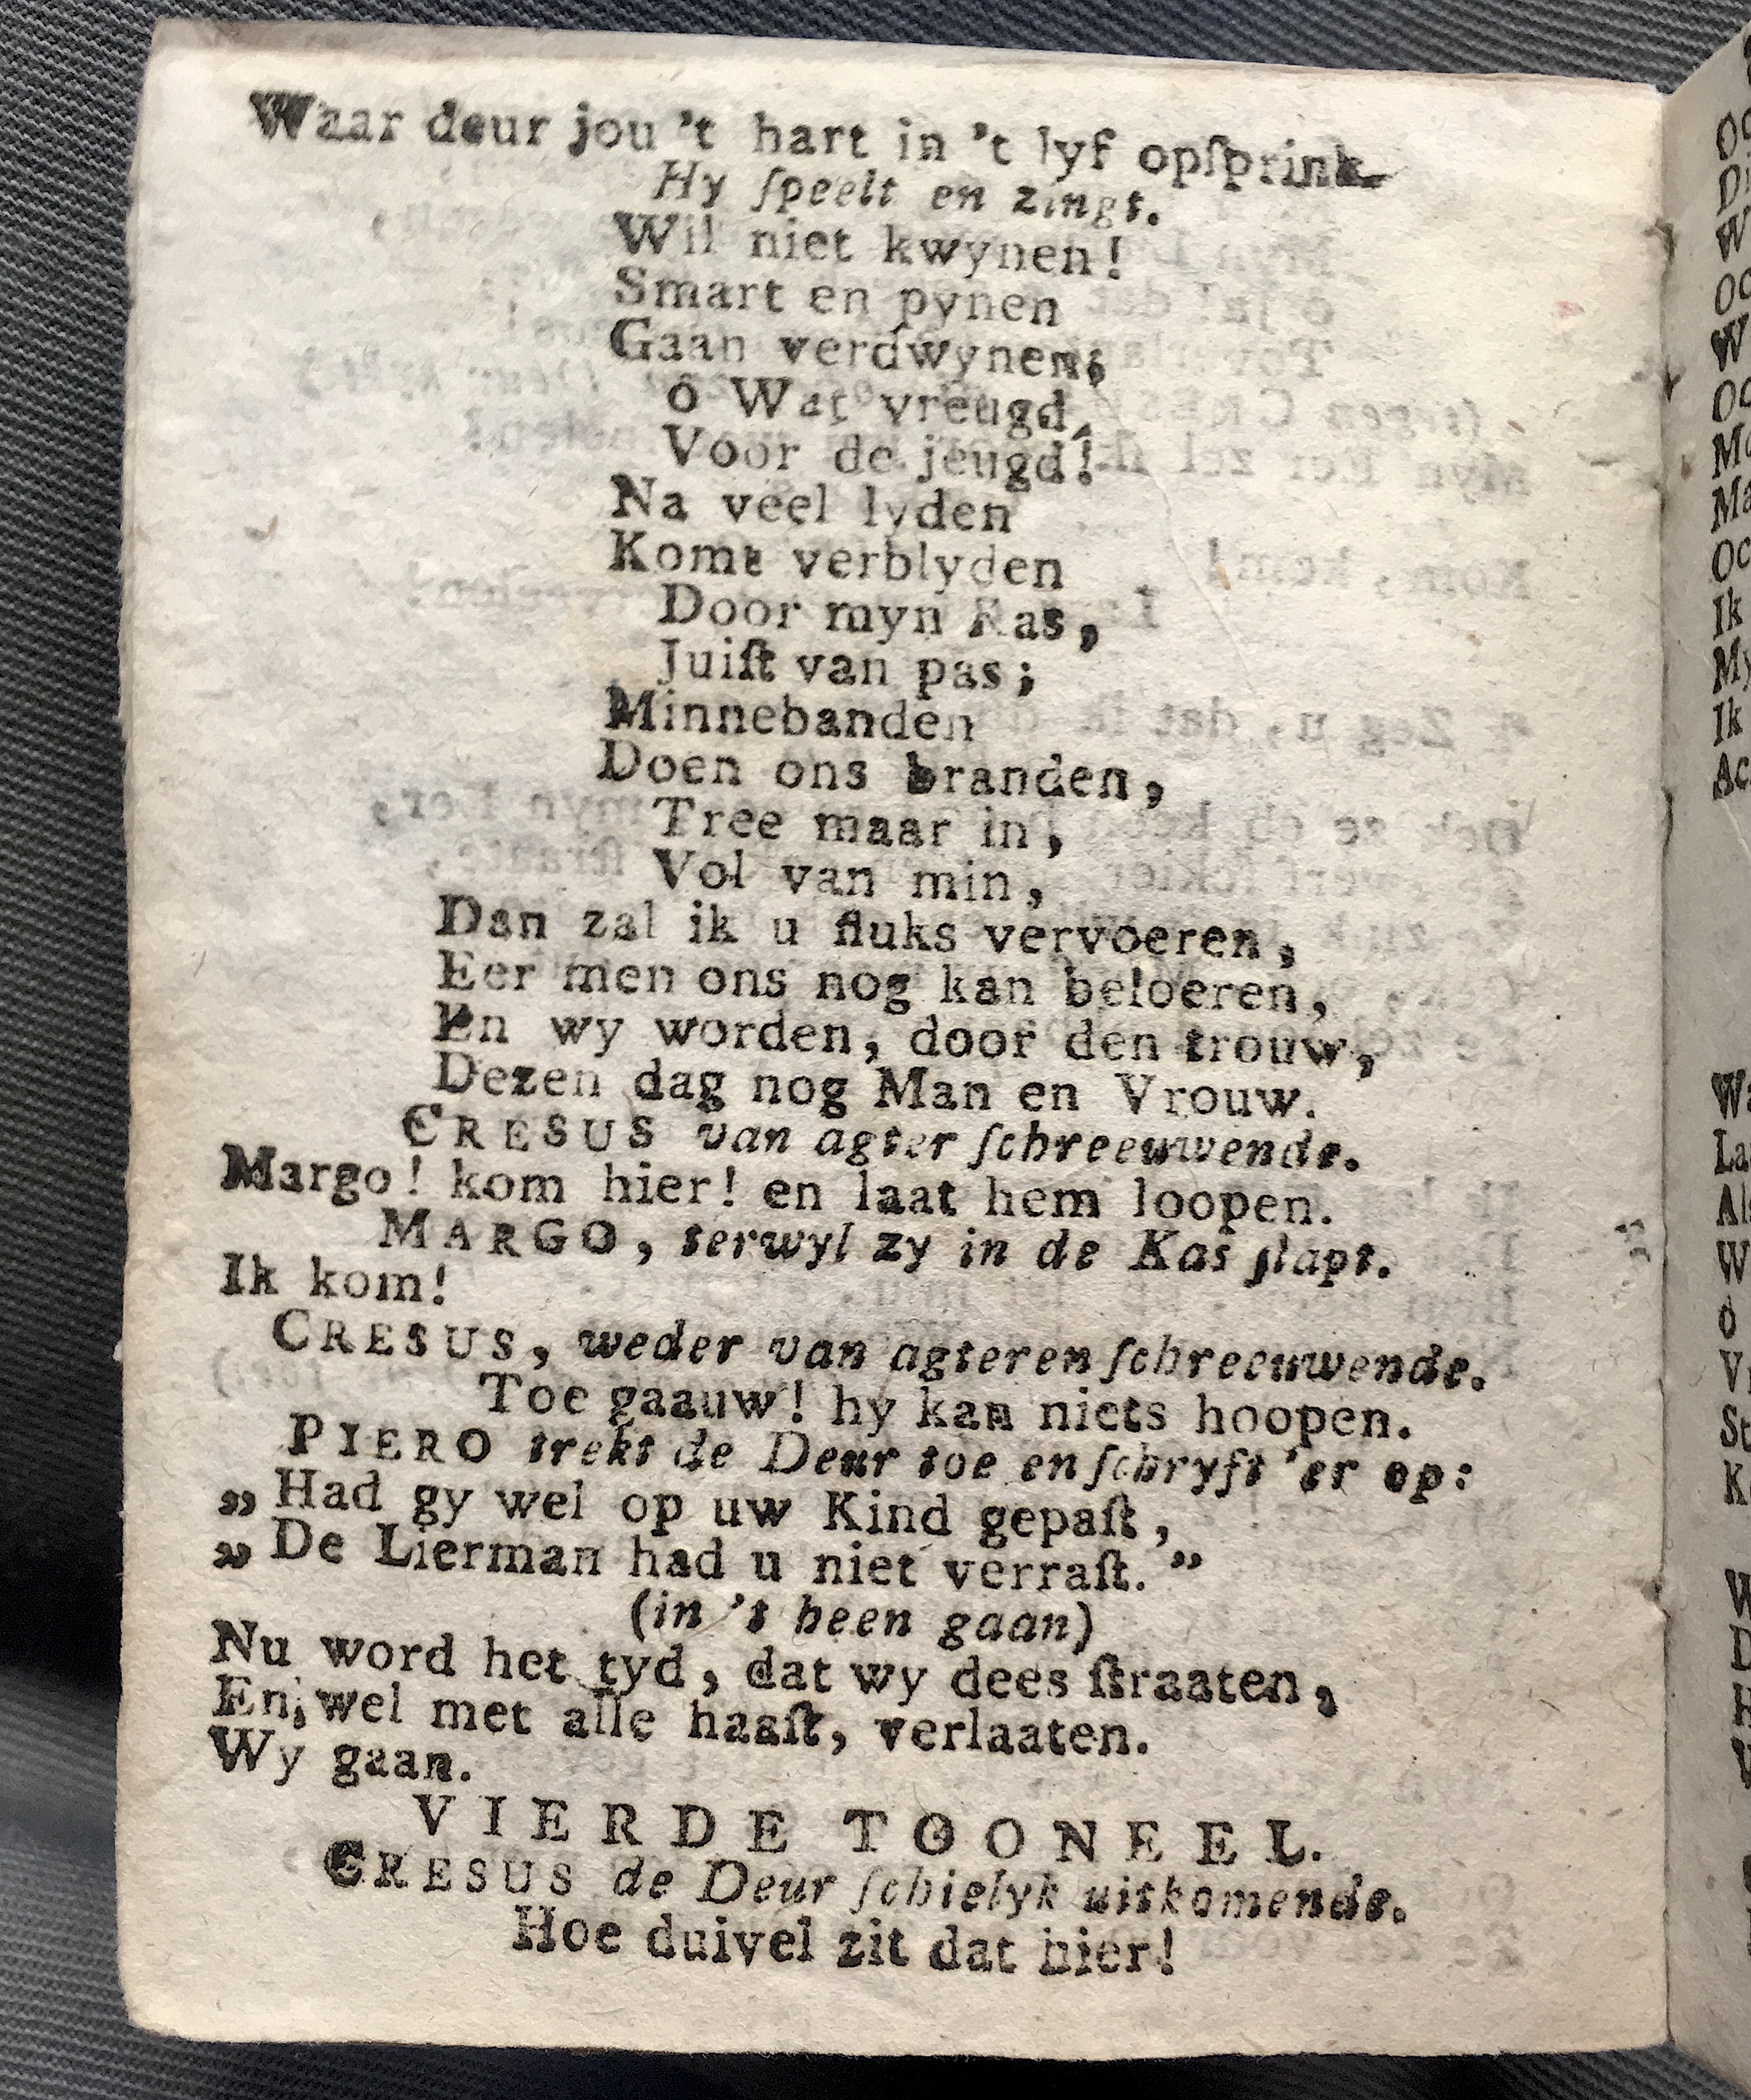 Waar deur jou 't hart in 't lyf opſprink.
Hy ſpeelt en zingt.
Wil niet kwynen!
Smart en pynen
Gaan verdwynen;
ô Wat vreugd,
Voor de jeugd!
Na veel lyden
Komt verblyden
Door myn Kas,
Juiſt van pas;
Minnebanden
Doen ons branden,
Tree maar in,
Vol van min,
Dan zal ik u fluks vervoeren,
Eer men ons nog kan beloeren,
En wy worden, door den trouw,
Dezen dag nog Man en Vrouw.
CRESUS van agter ſchreeuwende.
Margo! kom hier! en laat hem loopen.
MARGO, terwyl zy in de Kas ſtapt.
Ik kom!
CRESUS, weder van agteren ſchreeuwende.
Toe gaauw! hy kan niets hoopen.
PIERO trekt de Deur toe en ſchryft 'er op:
„Had gy wel op uw Kind gepaſt,
„De Lierman had u niet verraſt.”
(in 't heen gaan)
Nu word het tyd, dat wy dees ſtraaten,
En, wel met alle haaſt, verlaaten.
Wy gaan.
VIERDE TOONEEL.
CRESUS de Deur ſchielyk uitkomende.
Hoe duivel zit dat hier!